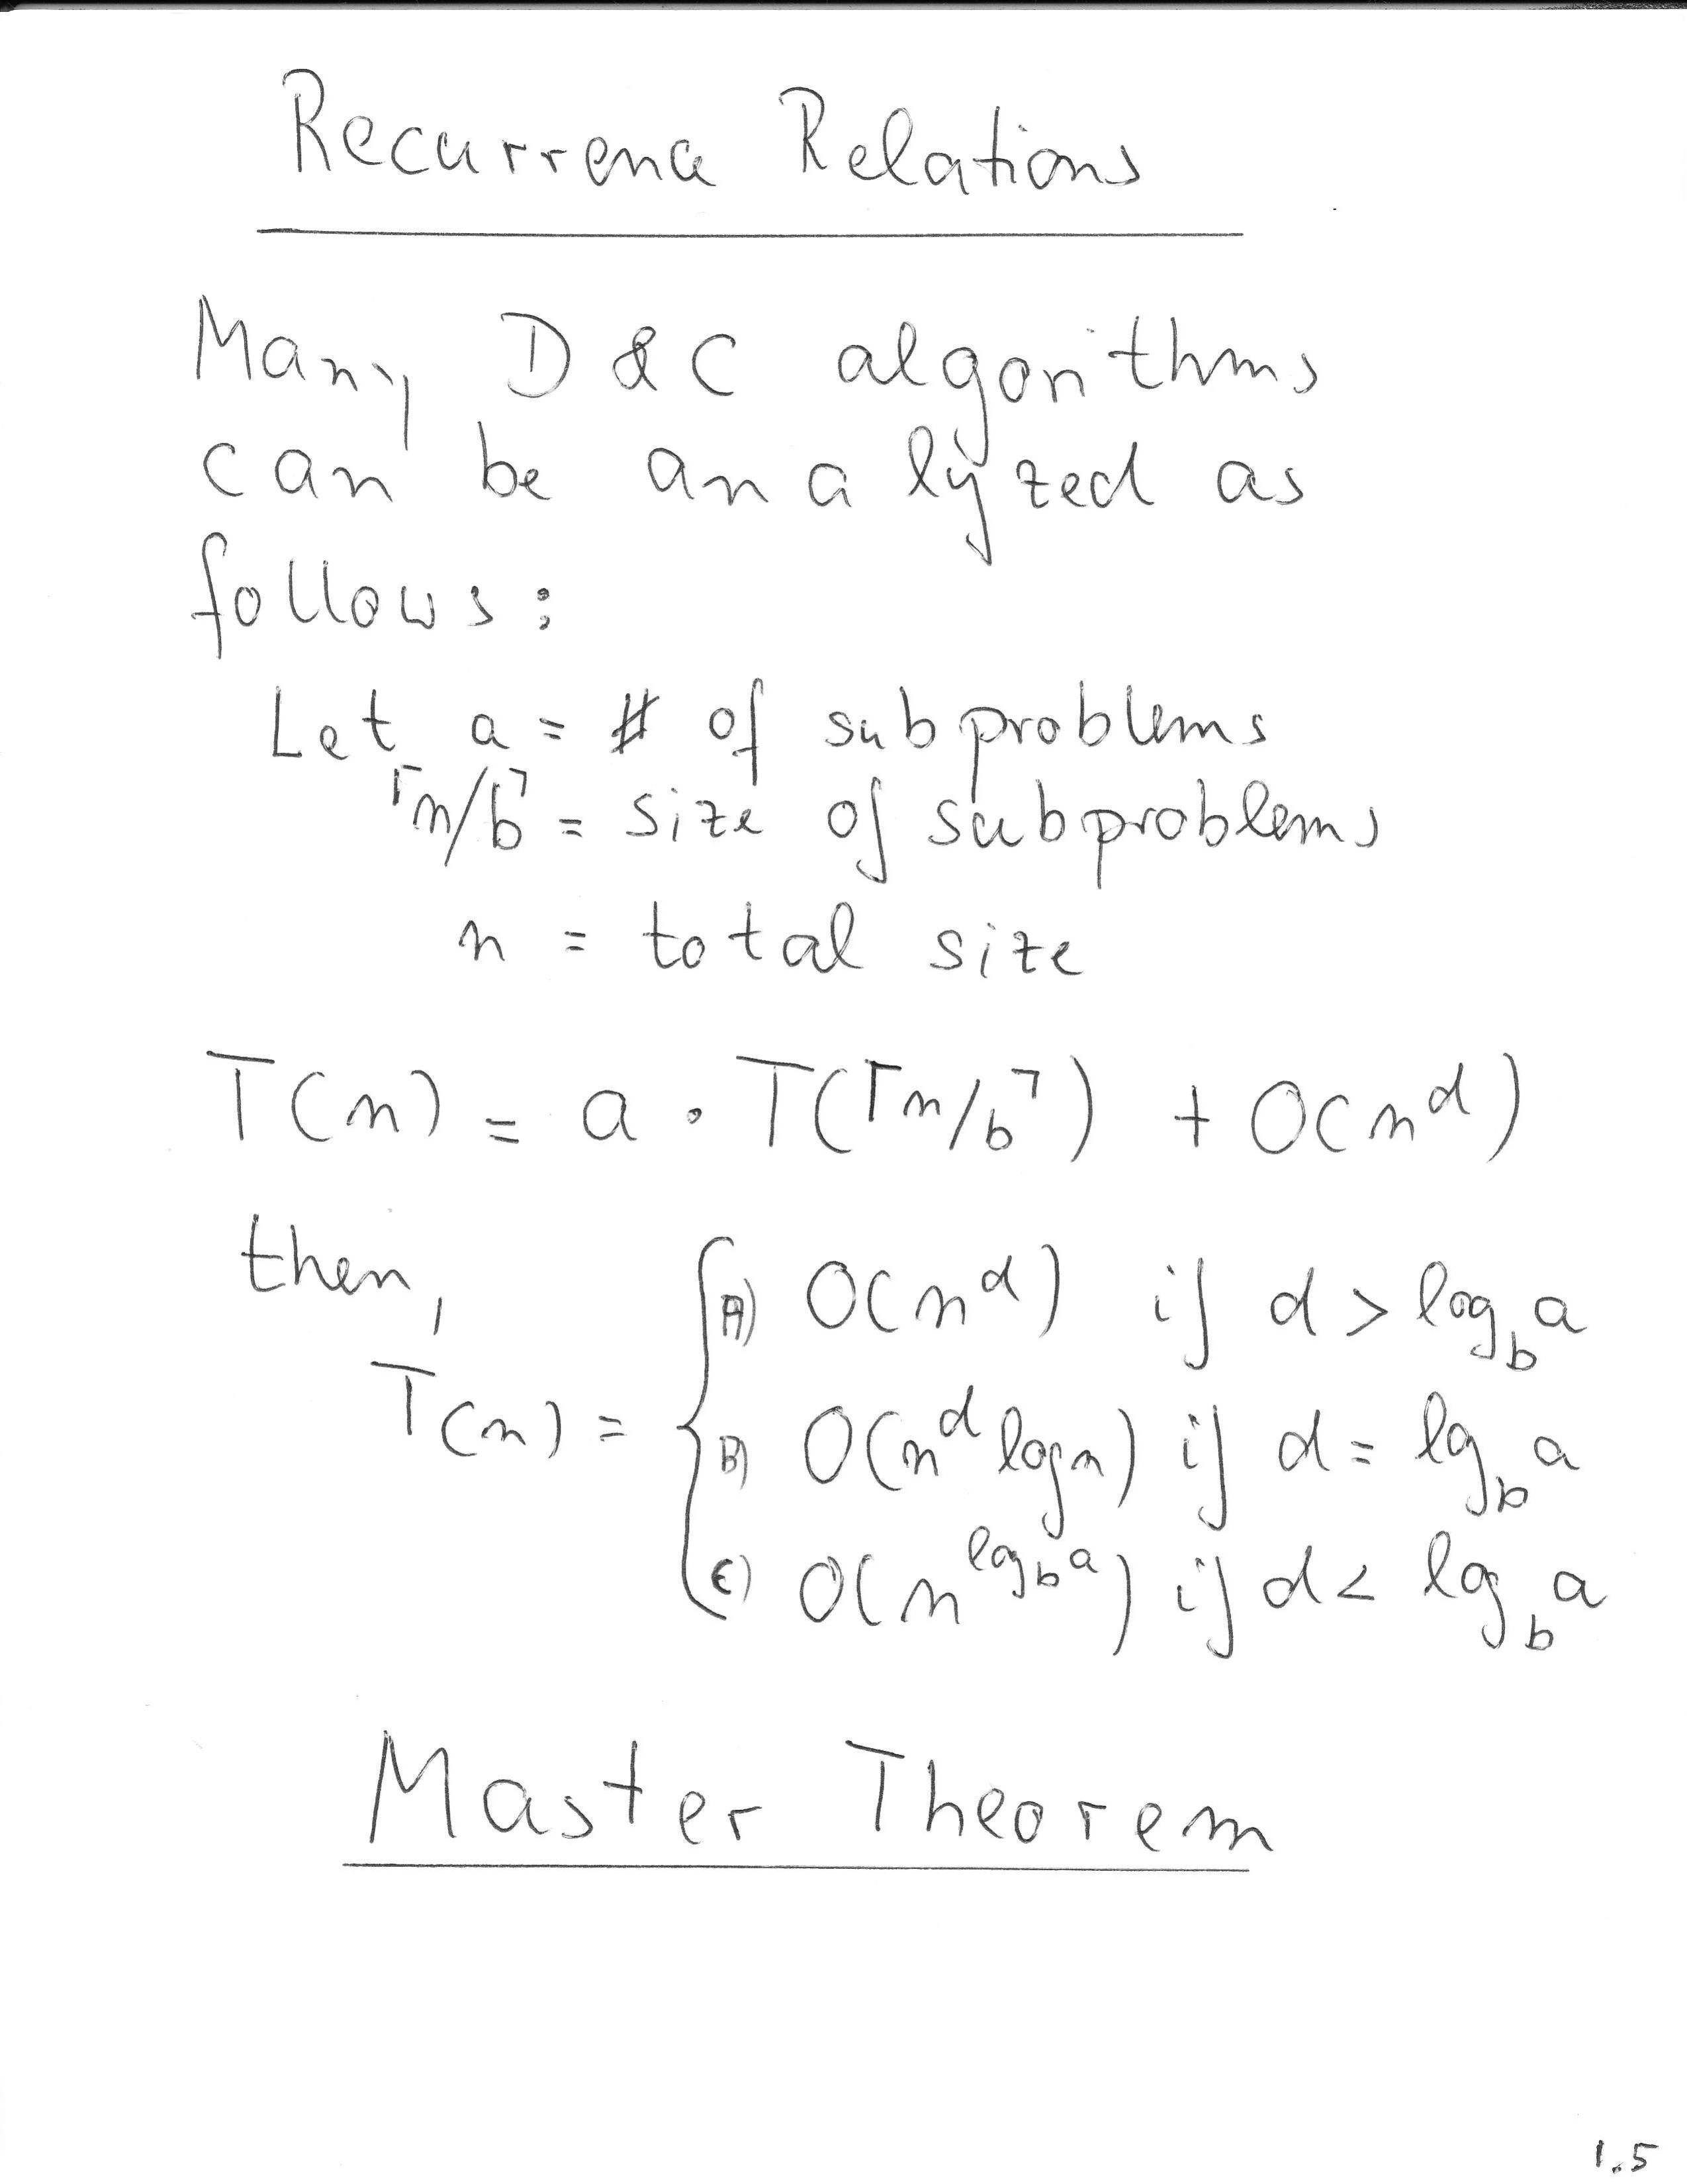 Recurrence Relations
Many D & C algorithms
can be analyzed as
follows:
Let a = # of subproblems
⌈n/b⌉ = size of subproblems
n = total size
T(n) = a · T(⌈n/b⌉) + O(n^d)
then,
A) O(n^d) if d > log_b a
T(n) = { B) O(n^d log n) if d = log_b a
C) O(n^(log_b a)) if d < log_b a
Master Theorem
1.5